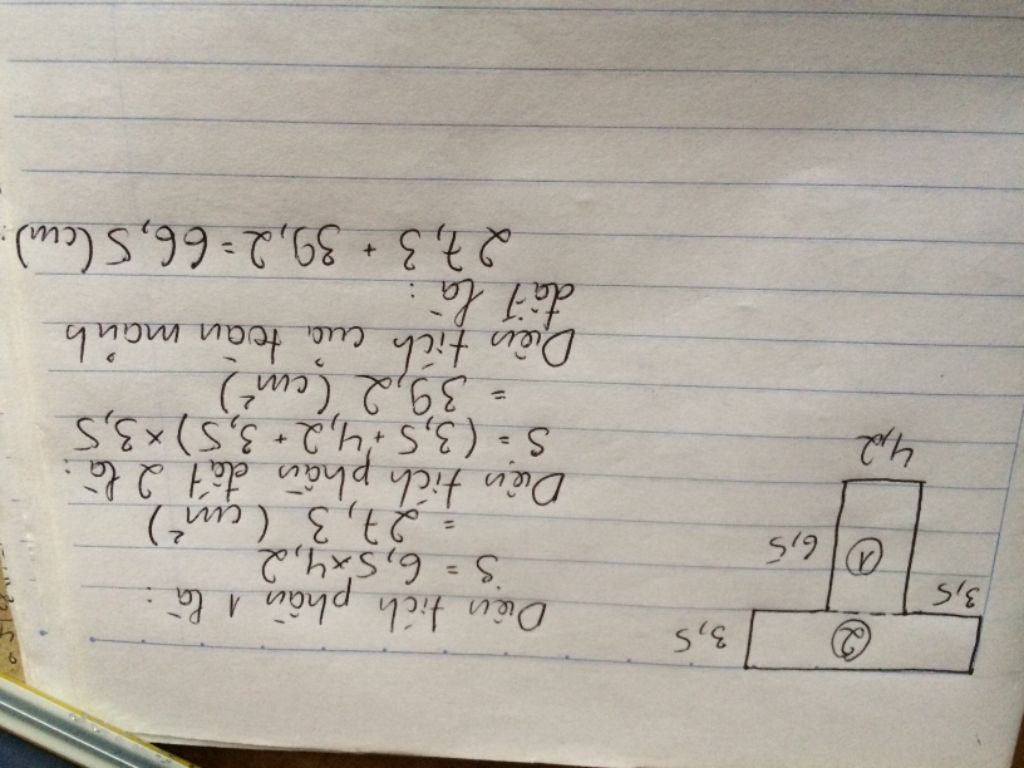 Diện tích phần 1 là:
S = 6,5 × 4,2
= 27,3 (cm²)
Diện tích phần đất 2 là:
S = (3,5 + 4,2 + 3,5) × 3,5
= 39,2 (cm²)
Diện tích của toàn mảnh
đất là:
27,3 + 39,2 = 66,5 (cm)
3,5
2
3,5
6,5
1
4,2